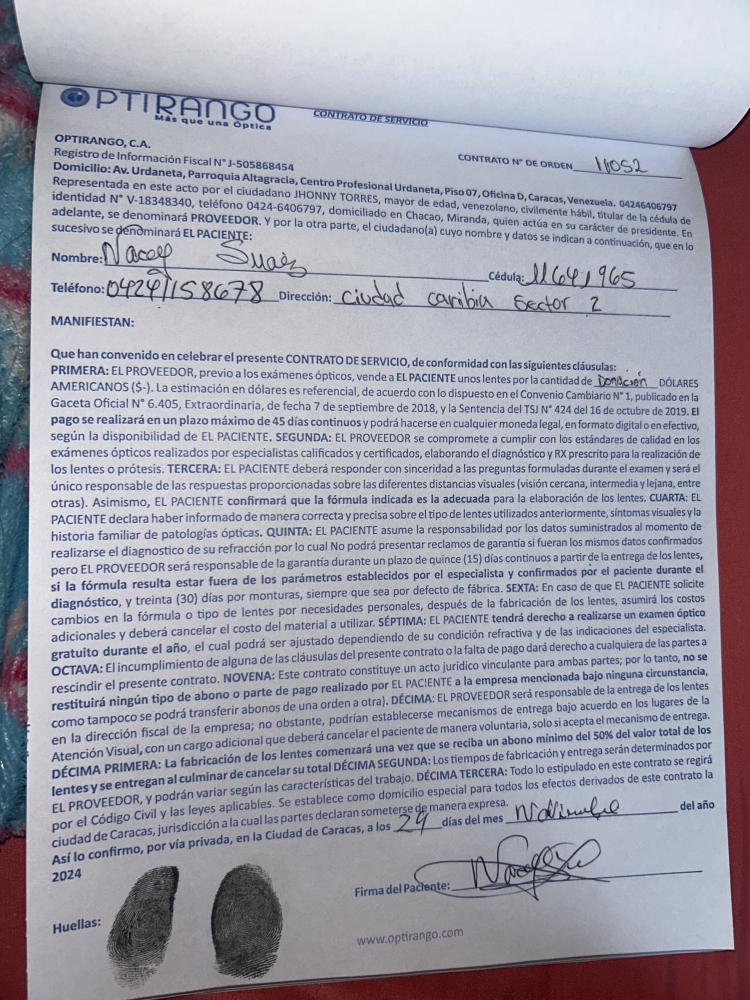 OPTIRANGO
Más que una Óptica
CONTRATO DE SERVICIO
OPTIRANGO, C.A.
CONTRATO N° DE ORDEN 11052
Registro de Información Fiscal N° J-505868454
Domicilio: Av. Urdaneta, Parroquia Altagracia, Centro Profesional Urdaneta, Piso 07, Oficina D, Caracas, Venezuela. 04246406797
Representada en este acto por el ciudadano JHONNY TORRES, mayor de edad, venezolano, civilmente hábil, titular de la cédula de
identidad N° V-18348340, teléfono 0424-6406797, domiciliado en Chacao, Miranda, quien actúa en su carácter de presidente. En
adelante, se denominará PROVEEDOR. Y por la otra parte, el ciudadano(a) cuyo nombre y datos se indican a continuación, que en lo
sucesivo se denominará EL PACIENTE:
Nombre: Suaez Cédula: 11641965
Teléfono: 04241158678 Dirección: ciudad caribia sector 2
MANIFIESTAN:
Que han convenido en celebrar el presente CONTRATO DE SERVICIO, de conformidad con las siguientes cláusulas:
PRIMERA: EL PROVEEDOR, previo a los exámenes ópticos, vende a EL PACIENTE unos lentes por la cantidad de Donación DÓLARES
AMERICANOS ($-). La estimación en dólares es referencial, de acuerdo con lo dispuesto en el Convenio Cambiario N° 1, publicado en la
Gaceta Oficial N° 6.405, Extraordinaria, de fecha 7 de septiembre de 2018, y la Sentencia del TSJ N° 424 del 16 de octubre de 2019. El
pago se realizará en un plazo máximo de 45 días continuos y podrá hacerse en cualquier moneda legal, en formato digital o en efectivo,
según la disponibilidad de EL PACIENTE. SEGUNDA: EL PROVEEDOR se compromete a cumplir con los estándares de calidad en los
exámenes ópticos realizados por especialistas calificados y certificados, elaborando el diagnóstico y RX prescrito para la realización de
los lentes o prótesis. TERCERA: EL PACIENTE deberá responder con sinceridad a las preguntas formuladas durante el examen y será el
único responsable de las respuestas proporcionadas sobre las diferentes distancias visuales (visión cercana, intermedia y lejana, entre
otras). Asimismo, EL PACIENTE confirmará que la fórmula indicada es la adecuada para la elaboración de los lentes. CUARTA: EL
PACIENTE declara haber informado de manera correcta y precisa sobre el tipo de lentes utilizados anteriormente, síntomas visuales y la
historia familiar de patologías ópticas. QUINTA: EL PACIENTE asume la responsabilidad por los datos suministrados al momento de
realizarse el diagnostico de su refracción por lo cual No podrá presentar reclamos de garantía si fueran los mismos datos confirmados
pero EL PROVEEDOR será responsable de la garantía durante un plazo de quince (15) días continuos a partir de la entrega de los lentes,
si la fórmula resulta estar fuera de los parámetros establecidos por el especialista y confirmados por el paciente durante el
diagnóstico, y treinta (30) días por monturas, siempre que sea por defecto de fábrica. SEXTA: En caso de que EL PACIENTE solicite
cambios en la fórmula o tipo de lentes por necesidades personales, después de la fabricación de los lentes, asumirá los costos
adicionales y deberá cancelar el costo del material a utilizar. SÉPTIMA: EL PACIENTE tendrá derecho a realizarse un examen óptico
gratuito durante el año, el cual podrá ser ajustado dependiendo de su condición refractiva y de las indicaciones del especialista.
OCTAVA: El incumplimiento de alguna de las cláusulas del presente contrato o la falta de pago dará derecho a cualquiera de las partes a
rescindir el presente contrato. NOVENA: Este contrato constituye un acto jurídico vinculante para ambas partes; por lo tanto, no se
restituirá ningún tipo de abono o parte de pago realizado por EL PACIENTE a la empresa mencionada bajo ninguna circunstancia,
como tampoco se podrá transferir abonos de una orden a otra). DÉCIMA: EL PROVEEDOR será responsable de la entrega de los lentes
en la dirección fiscal de la empresa; no obstante, podrían establecerse mecanismos de entrega bajo acuerdo en los lugares de la
Atención Visual, con un cargo adicional que deberá cancelar el paciente de manera voluntaria, solo si acepta el mecanismo de entrega.
DÉCIMA PRIMERA: La fabricación de los lentes comenzará una vez que se reciba un abono mínimo del 50% del valor total de los
lentes y se entregan al culminar de cancelar su total DÉCIMA SEGUNDA: Los tiempos de fabricación y entrega serán determinados por
EL PROVEEDOR, y podrán variar según las características del trabajo. DÉCIMA TERCERA: Todo lo estipulado en este contrato se regirá
por el Código Civil y las leyes aplicables. Se establece como domicilio especial para todos los efectos derivados de este contrato la
ciudad de Caracas, jurisdicción a la cual las partes declaran someterse de manera expresa.
Así lo confirmo, por vía privada, en la Ciudad de Caracas, a los 29 días del mes del año
2024
Firma del Paciente:
Huellas:
www.optirango.com